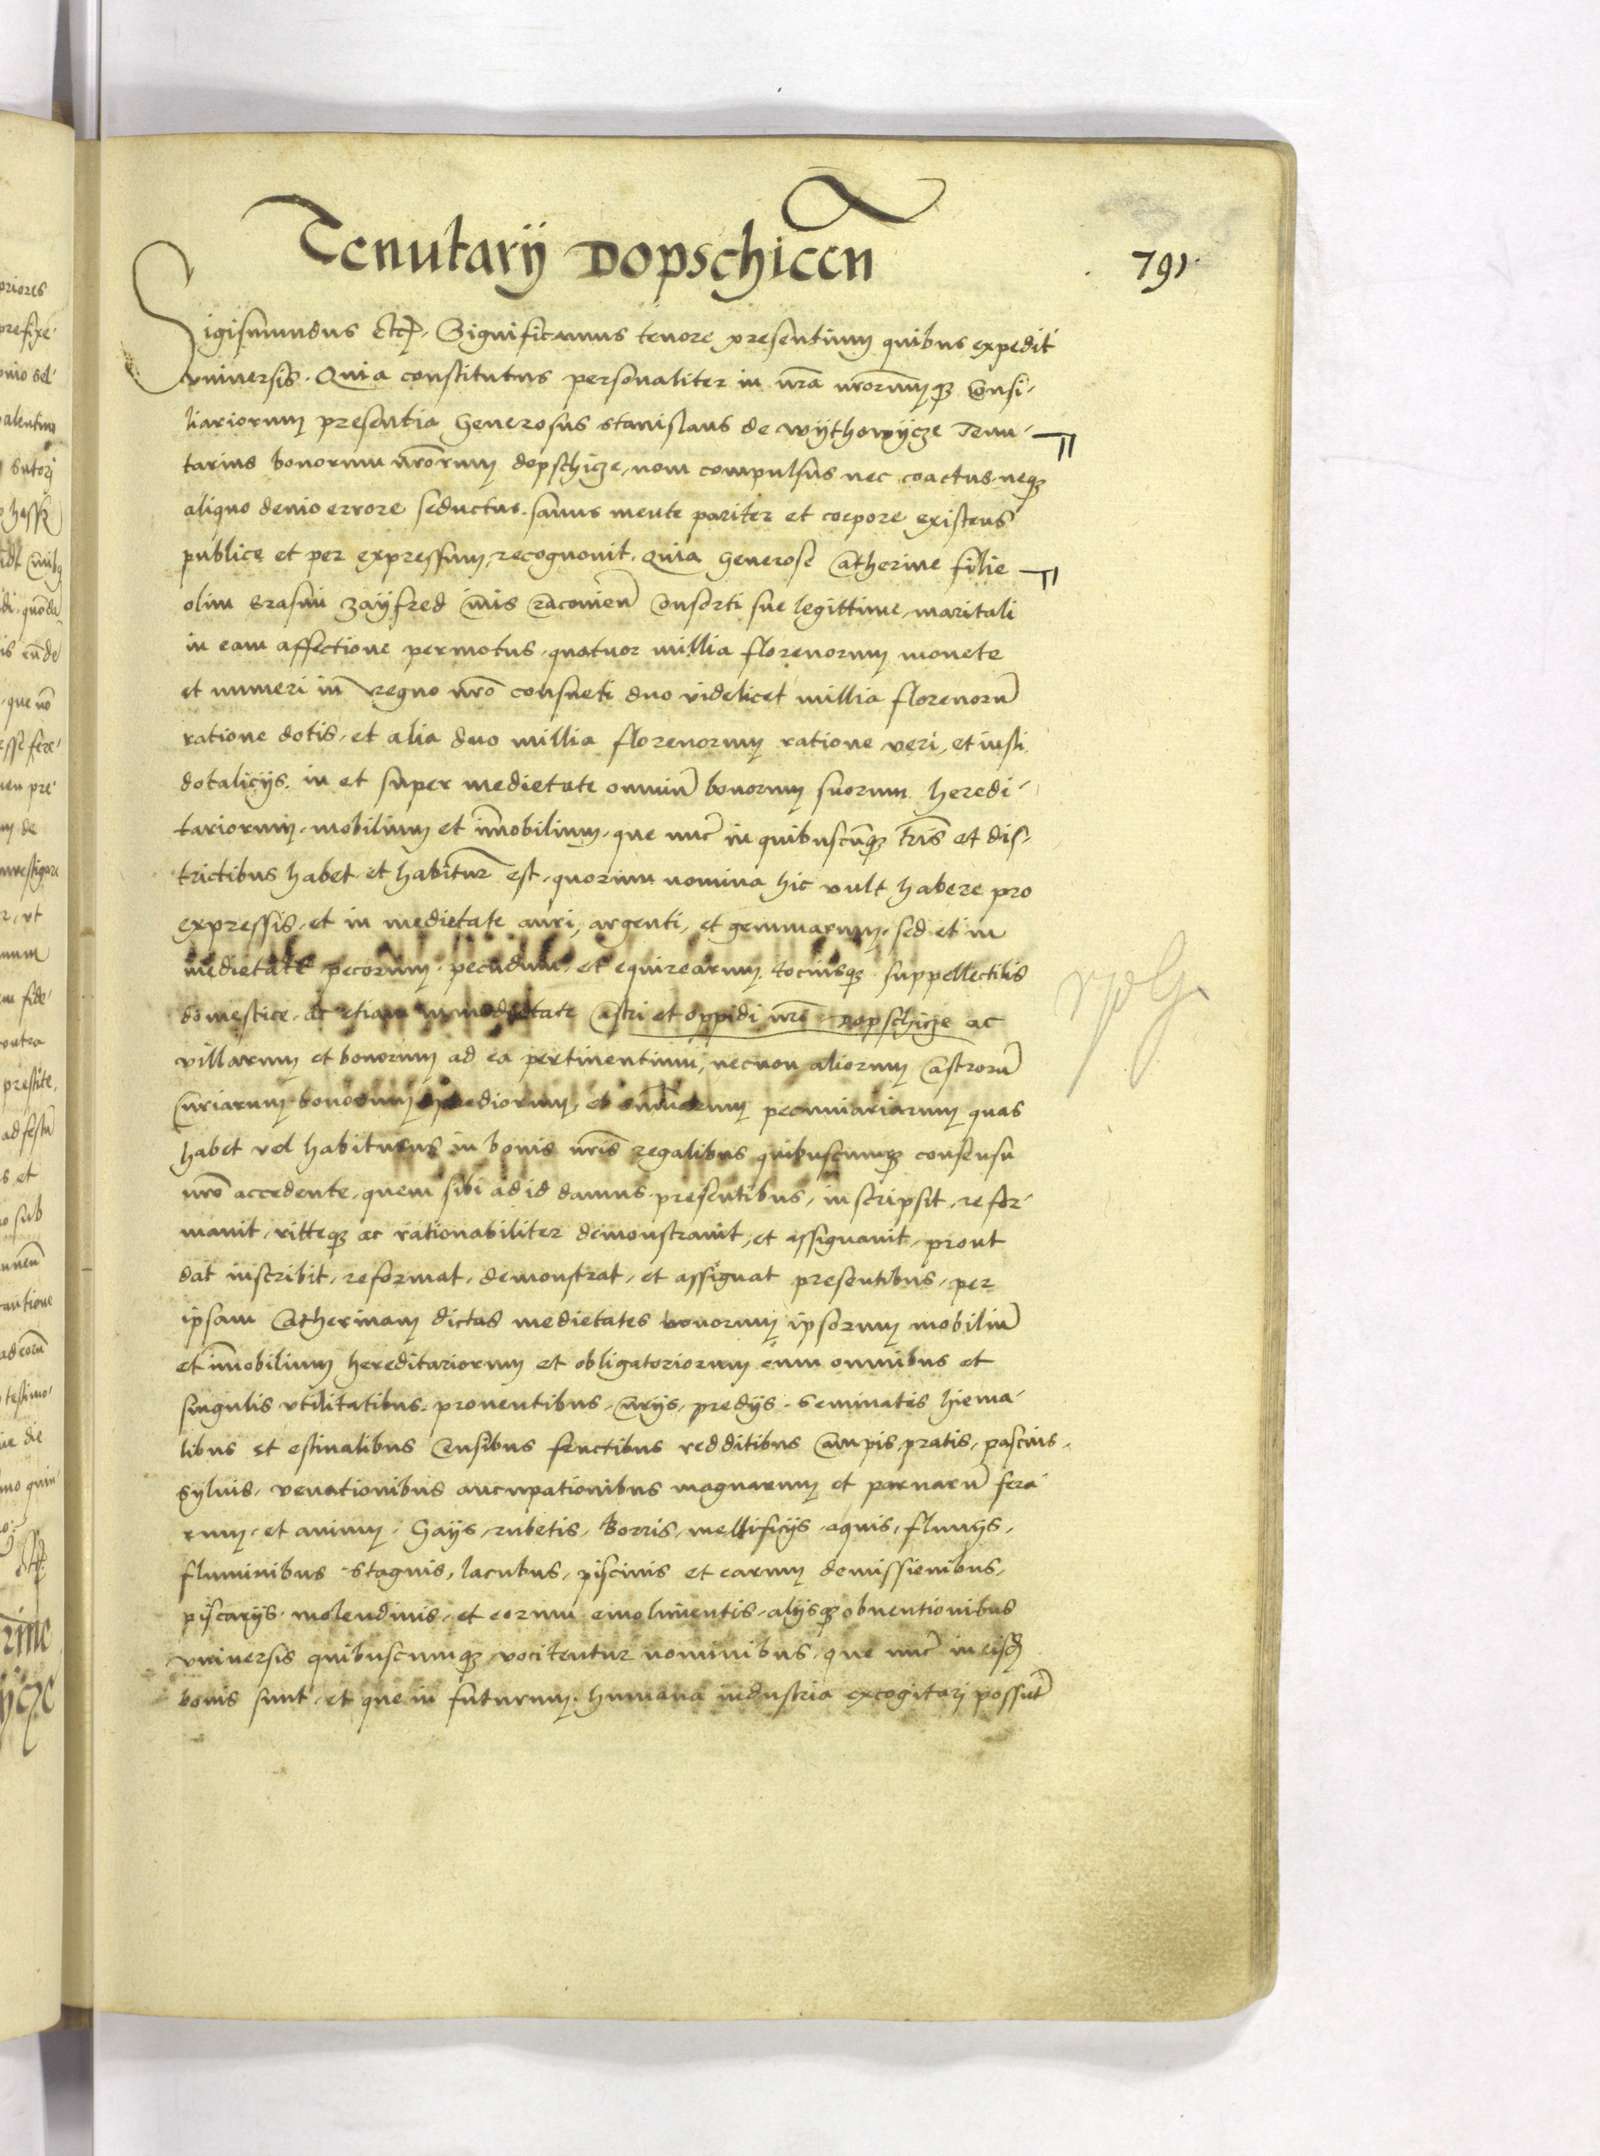 Tenutarij Dopschicen
791
Sigismundus Etc. Significamus tenore presentium quibus expedit
vniuersis. Quia constitutus personaliter in nra nrorumq Consi-
liariorum presentia Generosus Stanislaus de Wythowycze Tenu-
tarius bonorum nrorum dopschicze, nom compulsus nec coactus neq
aliquo deuio errore seductus. sanus mente pariter et corpore existens
publice et per expressum recognouit. Quia Generose Catherine filie
olim Erasmi Zayfred Ciuis Cracouien Consorti sue legittime, maritali
in eam affectione permotus, quatuor millia florenorum monete
et numeri in Regno nro consueti duo videlicet millia florenoru
ratione dotis, et alia duo millia florenorum ratione veri, et iusti
dotalicijs. in et super medietate omniu bonorum suorum heredi-
tariorum, mobilium et immobilium, que nuc in quibuscuq tris et dis-
trictibus habet et habitur est, quorum nomina hic vult habere pro
expressis, et in medietate auri, argenti, et gemmarum, sed et in
medietate pecorum, pecudum, et equirearum tociusq suppellectilis
domestice, ac etiam in medietate Castri et oppidi nri Dopschicze ac
villarum et bonorum ad ea pertinentium, necnon aliorum Castroru
Curiarum bonorum prediorum, et summarum pecuniariarum quas
habet vel habiturus in bonis nris regalibus quibuscumq consensu
nro accedente, quem sibi ad id damus presentibus, inscripsit, refor-
mauit, ritteq ac rationabiliter demonstrauit, et assignauit, prout
dat inscribit, reformat, demonstrat, et assignat presentibus, per
ipsam Catherinam dictas medietates bonorum ipsorum mobiliu
et immobilium hereditariorum et obligatoriorum cum omnibus et
singulis vtilitatibus, prouentibus, Curijs, predijs, seminatis hiema-
libus et estiualibus Censibus fructibus redditibus Campis, pratis, pascuis,
syluis, venationibus aucupationibus magnarum et paruaru fera-
rum, et auium, Gays, rubetis, Borris, mellificijs, aquis, fluuijs,
fluminibus stagnis, lacubus, piscinis et earum demissionibus,
piscarijs, molendinis, et eorum emolumentis, alijsq obuentionibus
vniuersis quibuscumq vocitentur nominibus, que nuc in eisd
bonis sunt, et que in futurum humana industria excogitari possut